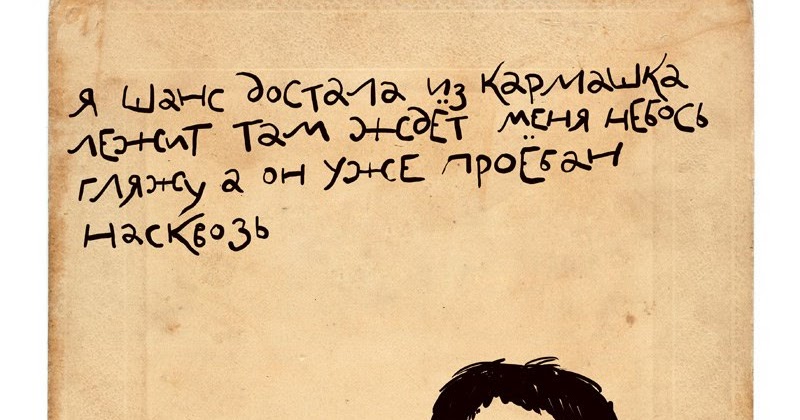 я шанс достала из кармашка
лежит там ждёт меня небось
гляжу а он уже проёбан
насквозь